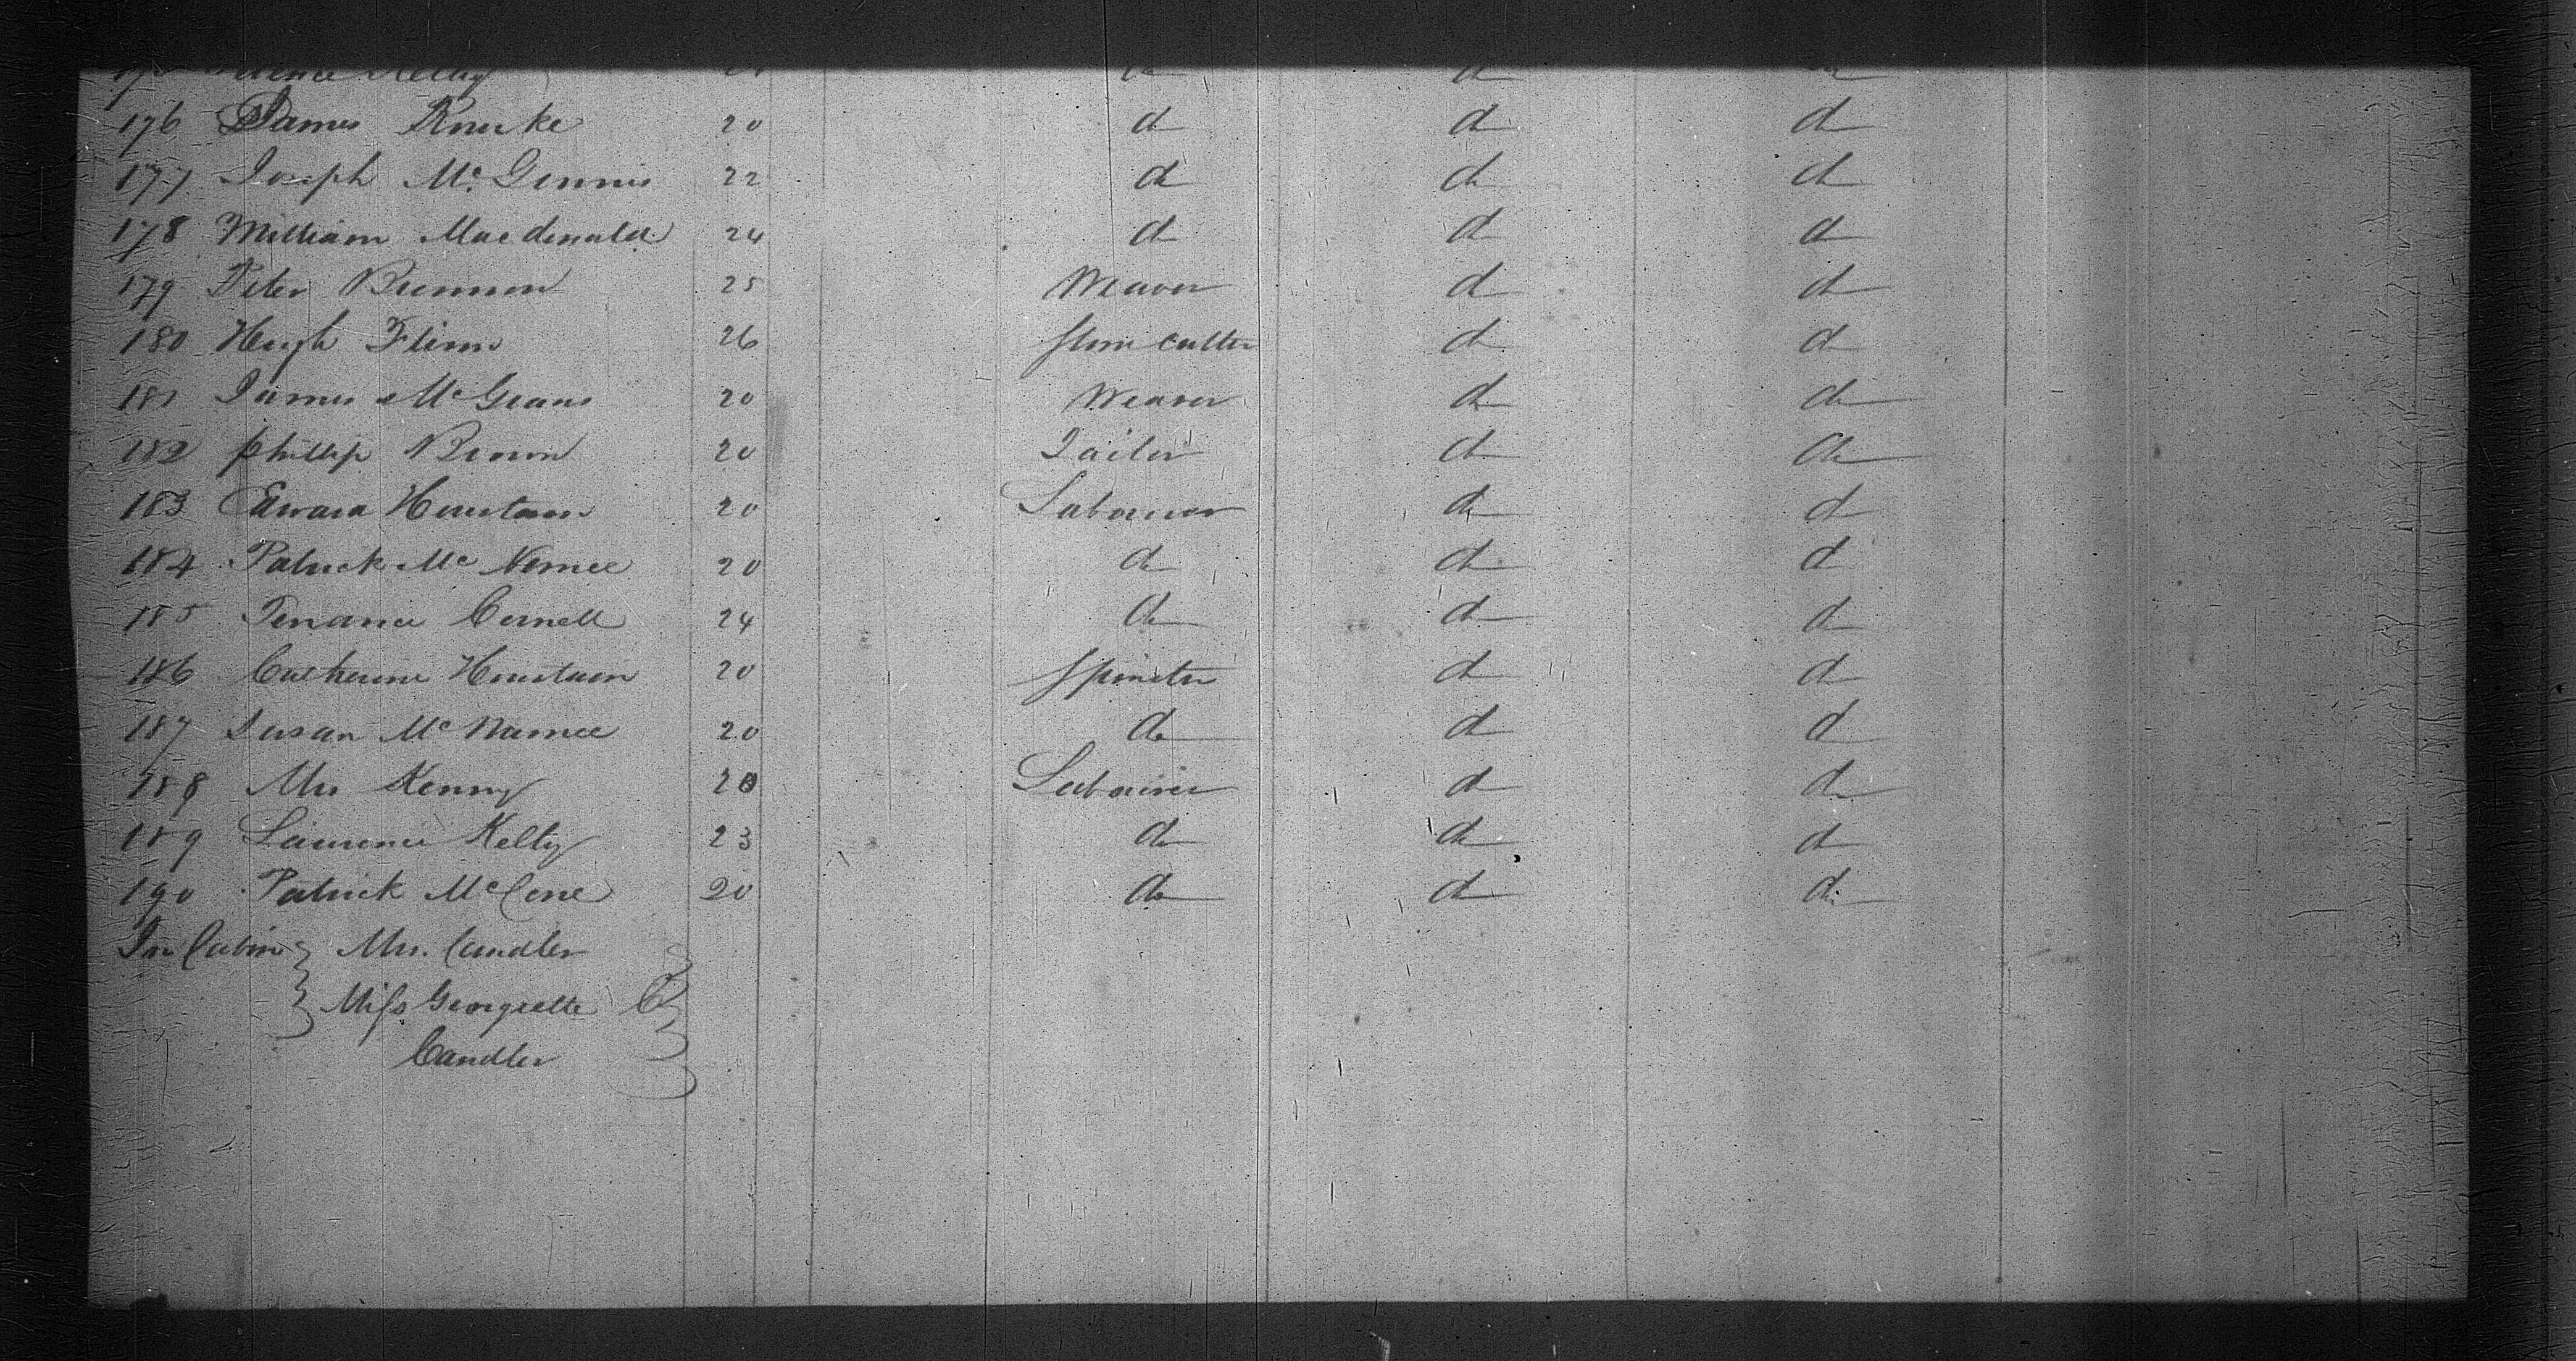 Kelly
176 James Rourke 20 do do do
177 Joseph McGinnis 22 do do do
178 William Macdonald 24 do do do
179 Peter Brennon 25 Weaver do do
180 Hugh Flinn 26 Stone cutter do do
181 James McGeaus 20 Weaver do do
182 Phillip Brown 20 Tailor do do
183 Edward Houstoun 20 Labourer do do
184 Patrick McNemee 20 do do do
185 Terrance Connell 24 do do do
186 Catherine Houstoun 20 Spinster do do
187 Susan McNamee 20 do do do
188 Kenny 20 Labourer do do
189 Laurence Kelty 23 do do do
190 Patrick McCone 20 do do do
In Cabin Mrs. Candler
Miss Georgiette C
Candler